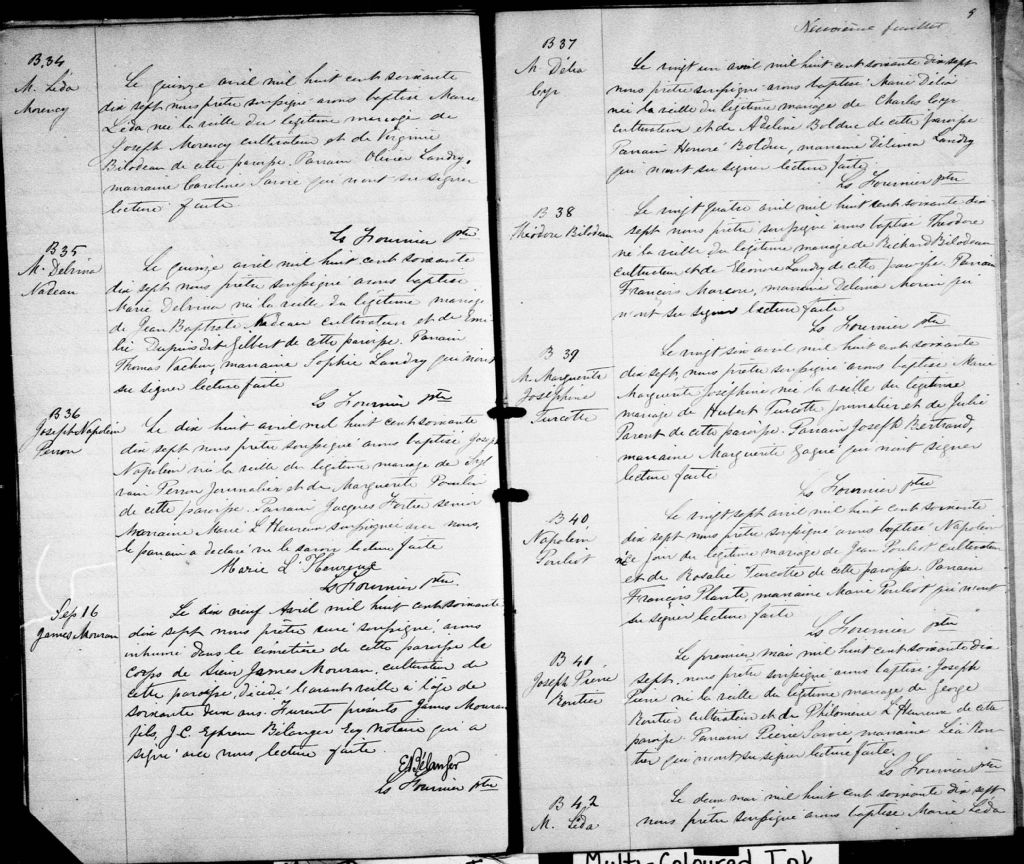 B34
M. Léda
Morency
Le quinze avril mil huit cent soixante
dix sept nous prêtre soussigné avons baptisé Marie
Léda née la veille du légitime mariage de
Joseph Morency cultivateur et de Virginie
Bilodeau de cette paroisse. Parrain Olivier Landry,
marraine Caroline Savoie qui n'ont su signer
lecture faite.
Ls Fournier ptre
B35
M. Delvina
Nadeau
Le quinze avril mil huit cent soixante
dix sept nous prêtre soussigné avons baptisé
Marie Delvina née la veille du légitime mariage
de Jean Baptiste Nadeau cultivateur et de Emi-
lie Dupuis dit Gilbert de cette paroisse. Parrain
Thomas Vachon marraine Sophie Landry qui n'ont
su signer lecture faite
Ls Fournier ptre
B36
Joseph Napoléon
Perron
Le dix huit avril mil huit cent soixante
dix sept nous prêtre soussigné avons baptisé Joseph
Napoléon né la veille du légitime mariage de Syl
vain Perron journalier et de Marguerite Pouliot
de cette paroisse. Parrain Jacques Fortier senior
Marraine Marie L'Heureux soussignée avec nous,
le parrain a déclaré ne le savoir lecture faite
Marie L'Heureux
Ls Fournier ptre.
Sep 16
James Mouran
Le dix neuf Avril mil huit cent soixante
dix sept nous prêtre curé soussigné, avons
inhumé dans le cimetière de cette paroisse le
corps de Sieur James Mouran, cultivateur de
cette paroisse, décédé l'avant veille à l'âge de
soixante deux ans. Furent présents James Mouran
fils, J.C. Ephrem Bélanger Ecr Notaire qui a
signé avec nous, lecture faite.
E. Bélanger
Ls Fournier ptre
9
Neuvième feuillet
B37
M. Délia
Cyr
Le vingt un avril mil huit cent soixante dix sept
nous prêtre soussigné avons baptisé Marie Délia
née la veille du légitime mariage de Charles Cyr
cultivateur et de Adeline Bolduc de cette paroisse
Parrain Honoré Bolduc, marraine Délima Landry
qui n'ont su signer lecture faite.
Ls Fournier ptre
B38
Théodore Bilodeau
Le vingt quatre avril mil huit cent soixante dix
sept nous prêtre soussigné avons baptisé Théodore
né la veille du légitime mariage de Richard Bilodeau
cultivateur et de Eléonore Landry de cette paroisse. Parrain
François Morin, marraine Delima Morin qui
n'ont su signer lecture faite
Ls Fournier ptre
B39
M. Marguerite
Joséphine
Turcotte
Le vingt six avril mil huit cent soixante
dix sept nous prêtre soussigné avons baptisé Marie
Marguerite Joséphine née la veille du légitime
mariage de Hubert Turcotte journalier et de Julie
Parent de cette paroisse. Parrain Joseph Bertrand,
marraine Marguerite Gagné qui n'ont signer
lecture faite
Ls Fournier ptre
B40
Napoléon
Pouliot
Le vingt sept avril mil huit cent soixante
dix sept nous prêtre soussigné avons baptisé Napoléon
né ce jour du légitime mariage de Jean Pouliot cultivateur
et de Rosalie Turcotte de cette paroisse. Parrain
François Plante, marraine Marie Pouliot qui n'ont
su signer lecture faite
Ls Fournier ptre
B41
Joseph Pierre
Routier
Le premier mai mil huit cent soixante dix
sept, nous prêtre soussigné avons baptisé Joseph
Pierre né la veille du légitime mariage de George
Routier cultivateur et de Philomène L'Heureux de cette
paroisse. Parrain Pierre Savoie, marraine Léa Rou-
tier qui n'ont su signer lecture faite.
Ls Fournier ptre
B42
M. Léda
Le deux mai mil huit cent soixante dix sept
nous prêtre soussigné avons baptisé Marie Léda
Multi-Coloured Ink